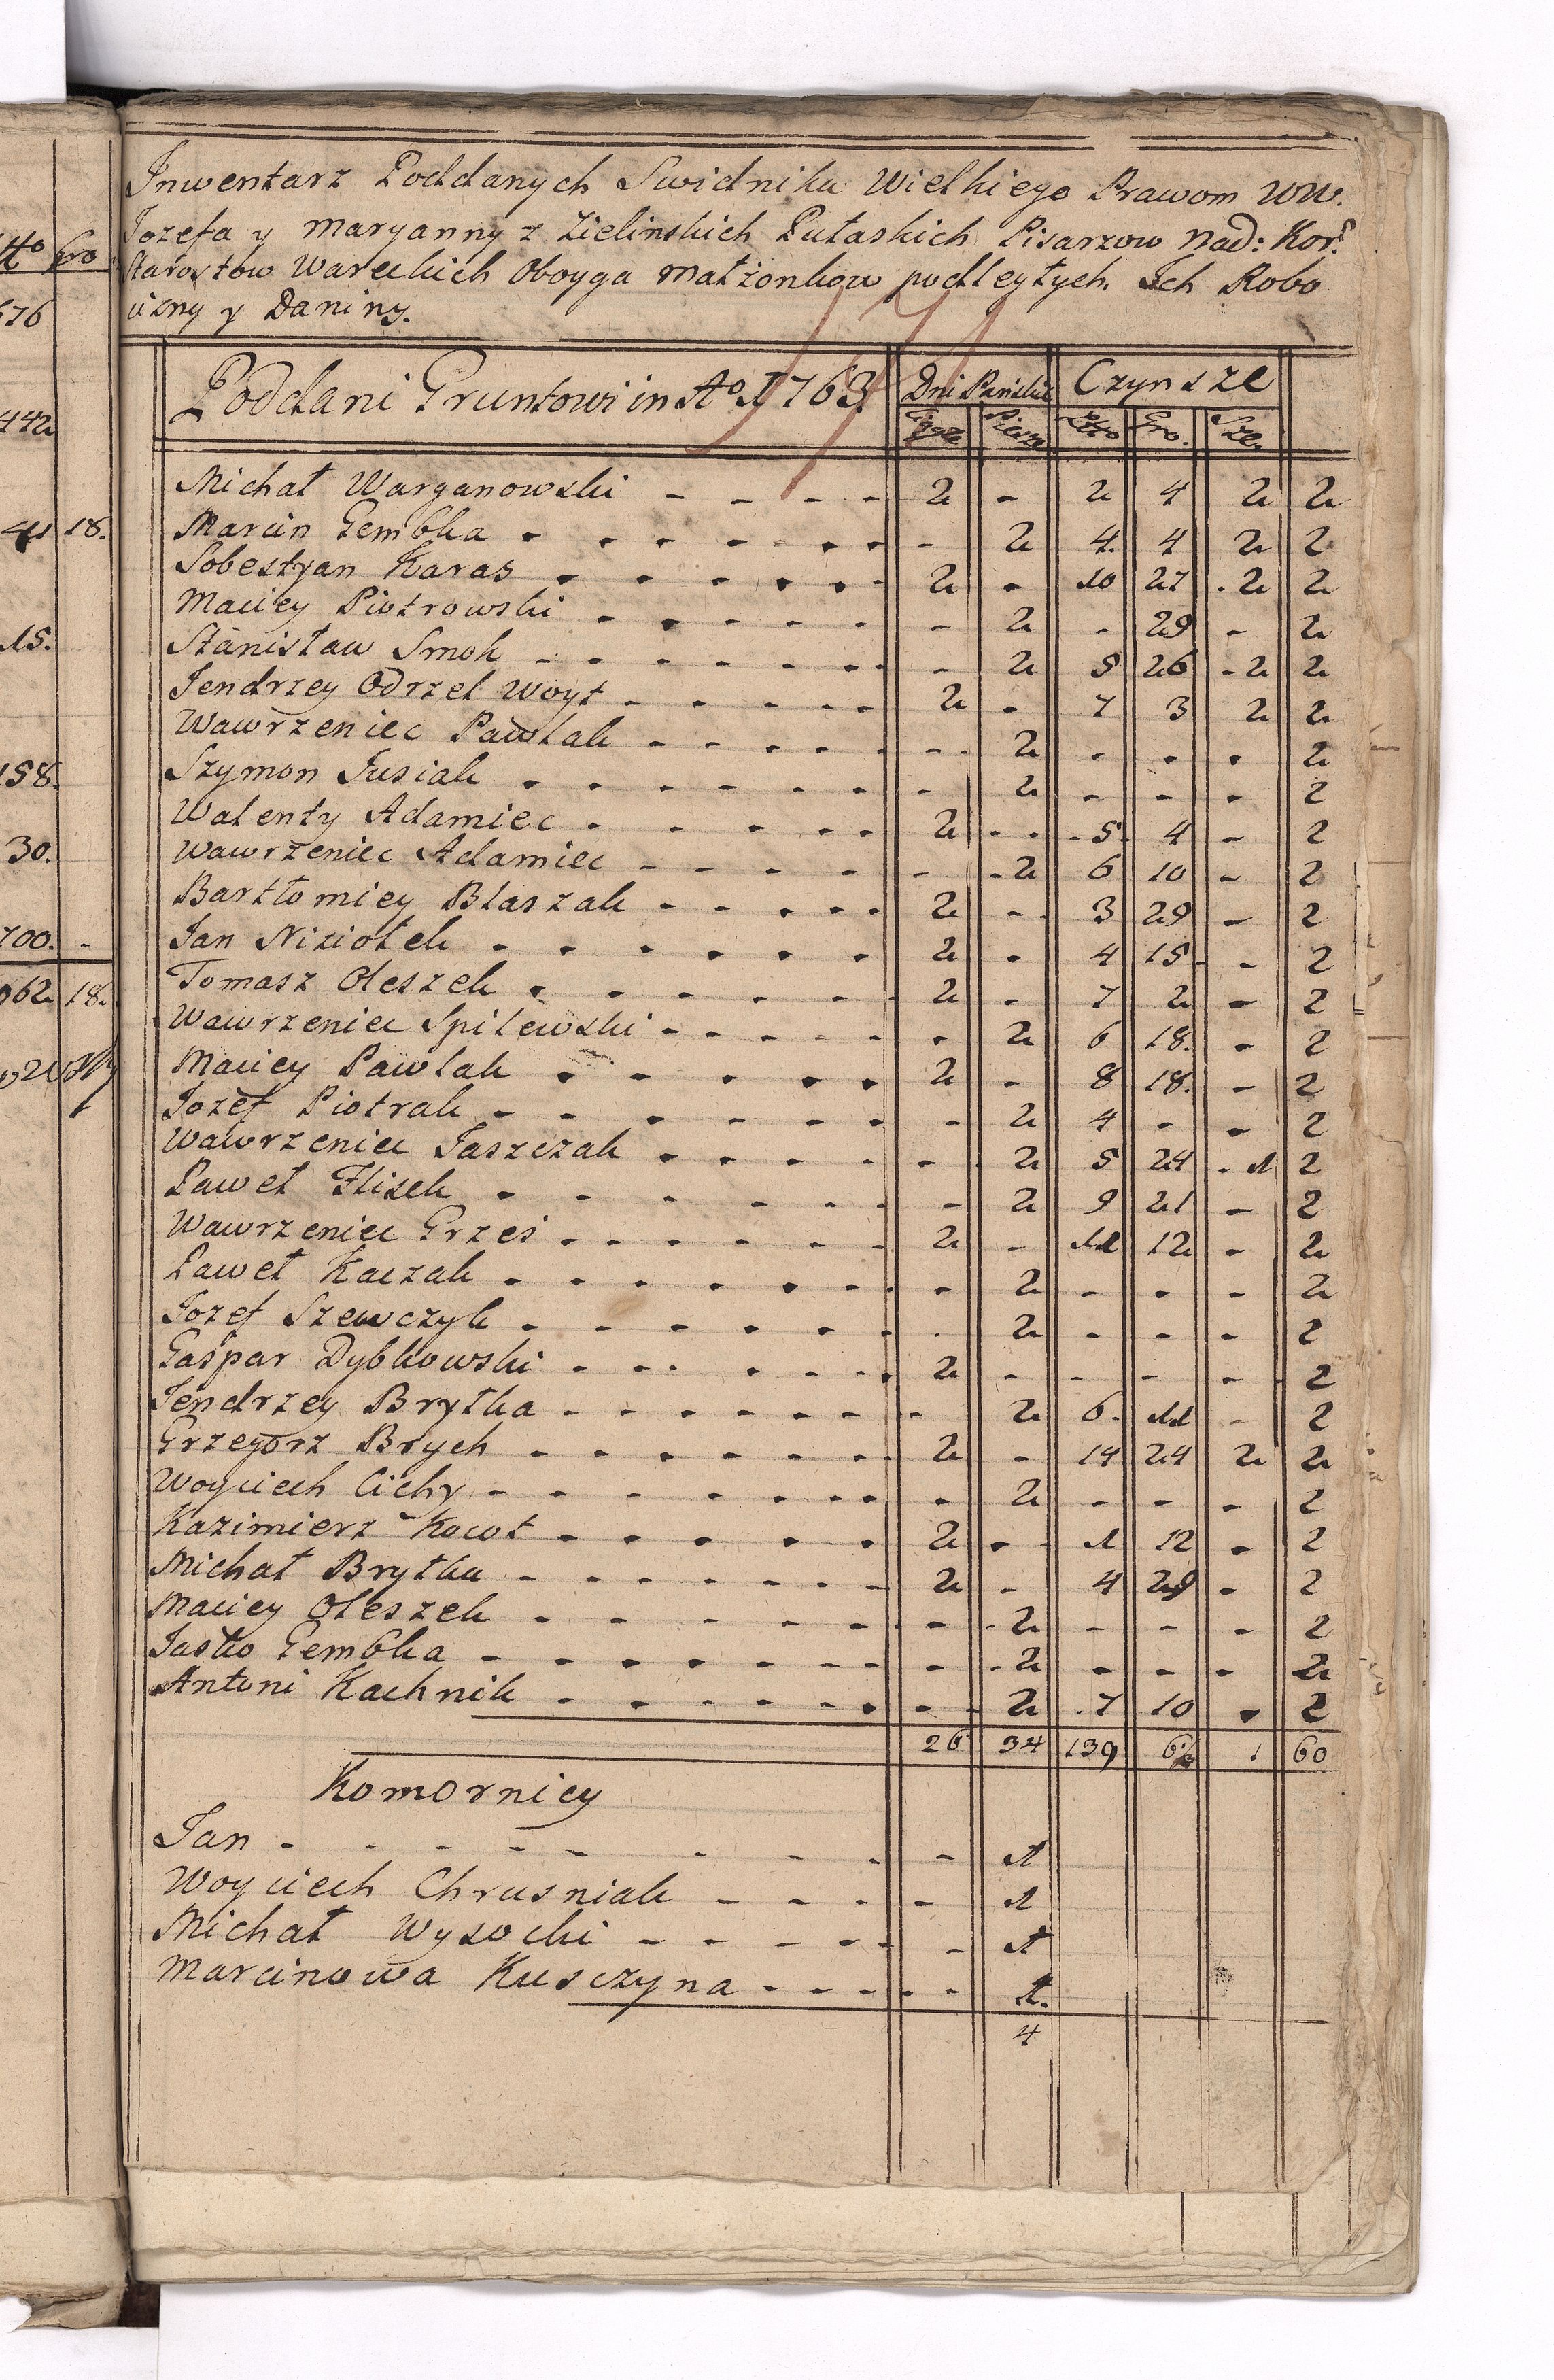 Inwentarz Poddanych Swidnika Wielkiego Prawom WW.
Jozefa y Maryanny z Zielinskich Pułaskich Pisarzow Nad: Kor:
Starostow Wareckich Oboyga Małżonkow podległych. Ich Robo
cizny y Daniny.
Poddani Gruntowi in Aº 1763 Dni Pańskie Czynsze
Ciągłe Piesze Zło Gro. Sze.
Michał Warganowski - - - - 2 - 2 4 2 2
Marcin Gembka - - - - - - - - 2 4. 4 2 2
Sobestyan Karas - - - - - - 2 - 10 27 - 2 2
Maciey Piotrowski - - - - - - - 2 - 29 - 2
Stanisław Smok - - - - - - - - 2 5 26 - 2 2
Jendrzey Odrzel Woyt - - - - - 2 - 7 3 2 2
Wawrzeniec Pawlak - - - - - - - 2 - - - 2
Szymon Jusiak - - - - - - - - 2 - - - 2
Walenty Adamiec - - - - - 2 - - - 5 4 - 2
Wawrzeniec Adamiec - - - - - - - 2 6 10 - 2
Bartłomiey Blaszak - - - - - 2 - 3 29 - 2
Jan Niziołek - - - - - - 2 - 4 15 - - 2
Tomasz Oleszek - - - - - - 2 - 7 2 - 2
Wawrzeniec Spilewski - - - - - - - 2 6 18. - 2
Maciey Pawlak - - - - - 2 - 8 18. - 2
Jozef Piotrak - - - - - - - - 2 4 - - 2
Wawrzeniec Jaszczak - - - - - - 2 5 24 - 1 2
Paweł Flisek - - - - - - - 2 9 21 - 2
Wawrzeniec Grześ - - - - - - 2 - 11 12 - 2
Paweł Kaczak - - - - - - - - 2 - - - 2
Jozef Szewczyk - - - - - - - 2 - - - 2
Gaspar Dybkowski - - - - - - 2 - - - - 2
Jendrzey Brytka - - - - - - - - 2 6. 11 - 2
Grzegorz Brych - - - - - - 2 - 14 24 2 2
Woyciech Cichy - - - - - - - - 2 - - - 2
Kazimierz Kowol - - - - - 2 - 1 12 - 2
Michał Brytka - - - - - - 2 - 4 29 - 2
Maciey Oleszek - - - - - - - - 2 - - - 2
Jasko Gembka - - - - - - - - - 2 - - - 2
Antoni Kachnik - - - - - - - - 2 7 10 - 2
26 34 139 6 1 60
Komornicy
Jan - - - - - - - - - 1
Woyciech Chrusniak - - - - - 1
Michał Wysocki - - - - - - 1
Marcinowa Kusczyna - - - - - - 1.
4